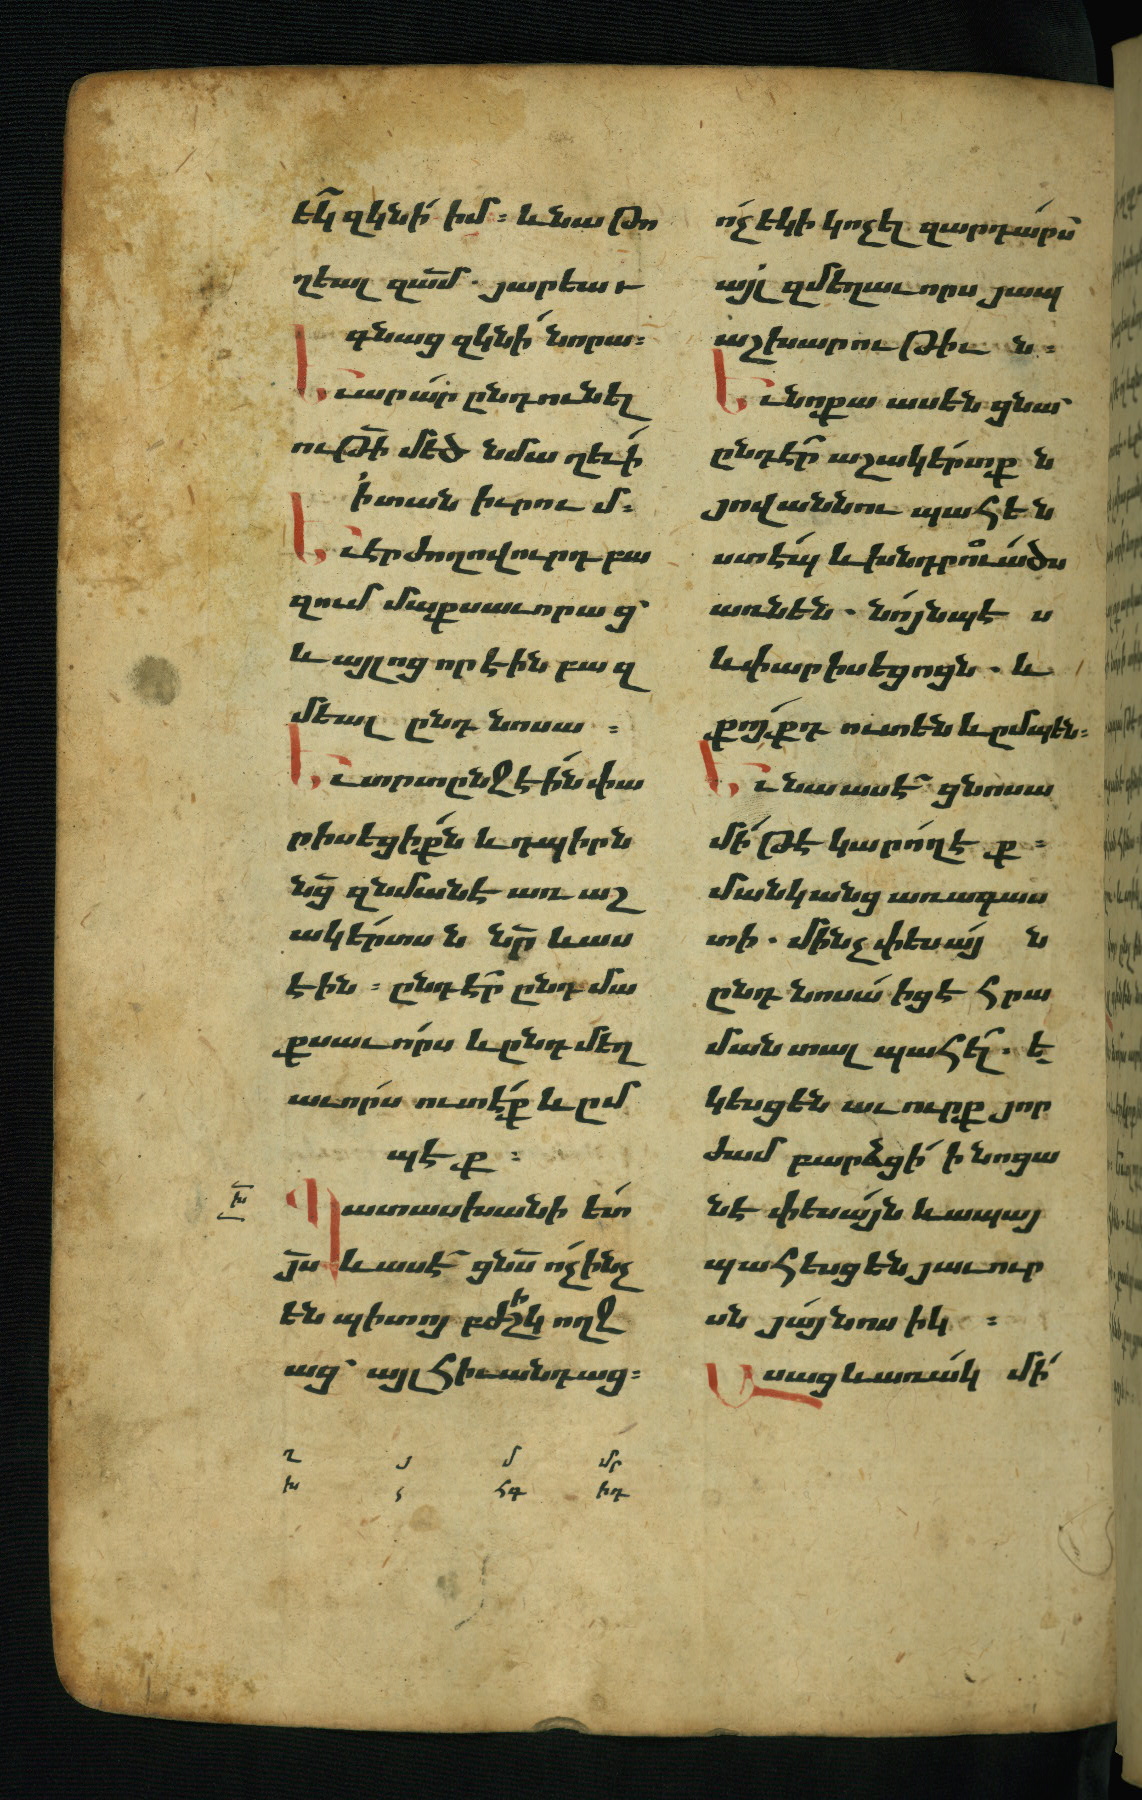 եկ՜ զկնի՛ իմ ։ և նա թո
ղեալ զամ՜ ․ յարեաւ
գնաց զկնի՛ նորա ։
Եւ արա՛ր ընդունել
ութի՜ մեծ նմա ղեւի՛
ի տան իւրում ։
Եւ էր ժողովուրդ բա
զում մաքսաւորաց՝
և այլոց որ էին բազ
մեալ ընդ նոսա ։
Եւ տրտընջէի՛ն փա
րիսեցիք՛ն և դպիրն
նց՜ զնմանէ առ աշ
ակե՛րտսն նր՜ և աս
էին ։ ընդէր՞ ընդ մա
քսաւո՛րս և ընդ մեղ
աւո՛րս ուտէ՛ք և ըմ
պէք ։
Պատասխանի ետ՛
յս՜ և ասէ՜ ցնս՜ ո՛չ ինչ
են պիտոյ բժիշկ ողջ
աց՝ այլ հիւանդաց ։
խ
ղ յ մ մր
խ հ հգ իդ
ո՛չ եկի կոչել զարդա՛րս՜
այլ զմեղաւորս յապ
աշխարութիւն ։
Եւ նոքա ասեն ցնա՝
ընդէր՞ աշակե՛րտքն
յովաննու պահեն
ստէ՛պ և խնդրուա՛ծս
առնեն ․ նո՛յնպէս
և փարիսեցոցն ․ և
քո՛յքդ ուտեն և ըմպեն ։
Եւ նա ասէ՜ ցնոսա
մի՛ թէ կարո՛ղ էք ։
մանկանց առագաս
տի ․ մինչ փեսա՛յն
ընդ նոսա՛ իցէ հրա
ման տալ պահել՛ ․ ե
կեսցեն աւուրք յոր
ժամ բարձցի՛ ի նոցա
նէ փեսա՛յն և ապայ
պահեսցեն յաւուր
սն յա՛յնոսիկ ։
Ասաց և առա՛կ մի՛